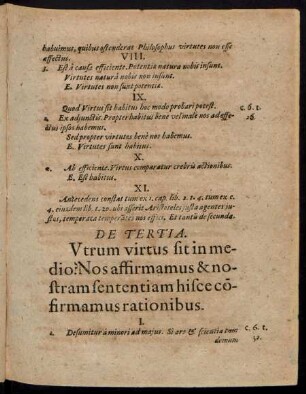 habuimus, quibus ostenderat Philosophus virtutes non esse
affectus.
VIII.
2. Est à causa efficiente. Potentia natura nobis insunt.
Virtutes naturâ nobis non insunt.
E. Virtutes non sunt potentiæ.
IX.
Quod Virtus sit habitus hoc modo probari potest. c. 6. t.
a. Ex adjunctis. Propter habitus benè vel malè nos ad affe- 26.
ctus ipsos habemus.
Sed propter virtutes benè nos habemus.
E. Virtutes sunt habitus.
X.
e. Ab efficiente. Virtus comparatur crebris actionibus.
E. Est habitus.
XI.
Antecedens constat tum ex 1. cap. lib. 2. t. 4. tum ex c.
4. ejusdem lib. t. 20. ubi asserit Aristoteles justa agentes ju-
stos, temperata temperātes nos effici, Et tantū de secunda.
DE TERTIA.
Vtrum virtus sit in me-
dio? Nos affirmamus & no-
stram sententiam hisce cō-
firmamus rationibus.
I.
1. Desumitur à minori ad majus. Si ars & scientia tum c. 6. t.
demum 31.